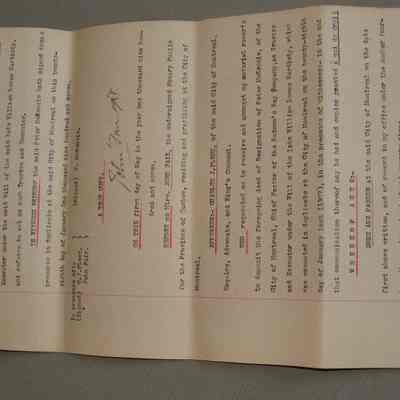 Executor under the said Will of the said late William Lunan
and refuses to act as such Trustee and Executor.
IN WITNESS WHEREOF the said Peter McKenzie hath signed these
presents in duplicate at the said City of Montreal on this twenty-
eighth day of January one thousand nine hundred and seven.
In presence of:
(Signed)
John Fair.
A TRUE COPY
John Fair N.P.
ON THIS first day of May in the year one thousand nine hun-
dred and seven.
BEFORE me Mtre. JOHN FAIR, the undersigned Notary Public
for the Province of Quebec, residing and practising at the City of
Montreal.
APPEARED:- CHARLES J. FLEET, of the said City of Montreal,
Esquire, Advocate, and King's Counsel.
WHO requested me to receive and amongst my notarial records
to deposit the foregoing Deed of Resignation of Peter McKenzie, of the
City of Montreal, Chief Factor of the Hudson's Bay Company, as Trustee
and Executor under the Will of the late William Lunan, which
was executed in duplicate at the City of Montreal on the twenty-eighth
day of January last (1907), in the presence of witnesses:- to the end
that communication thereof may be had and copies granted
WHEREOF ACTE:-
DONE AND PASSED at the said City of Montreal on the date
first above written, and of record in my office under the number four-